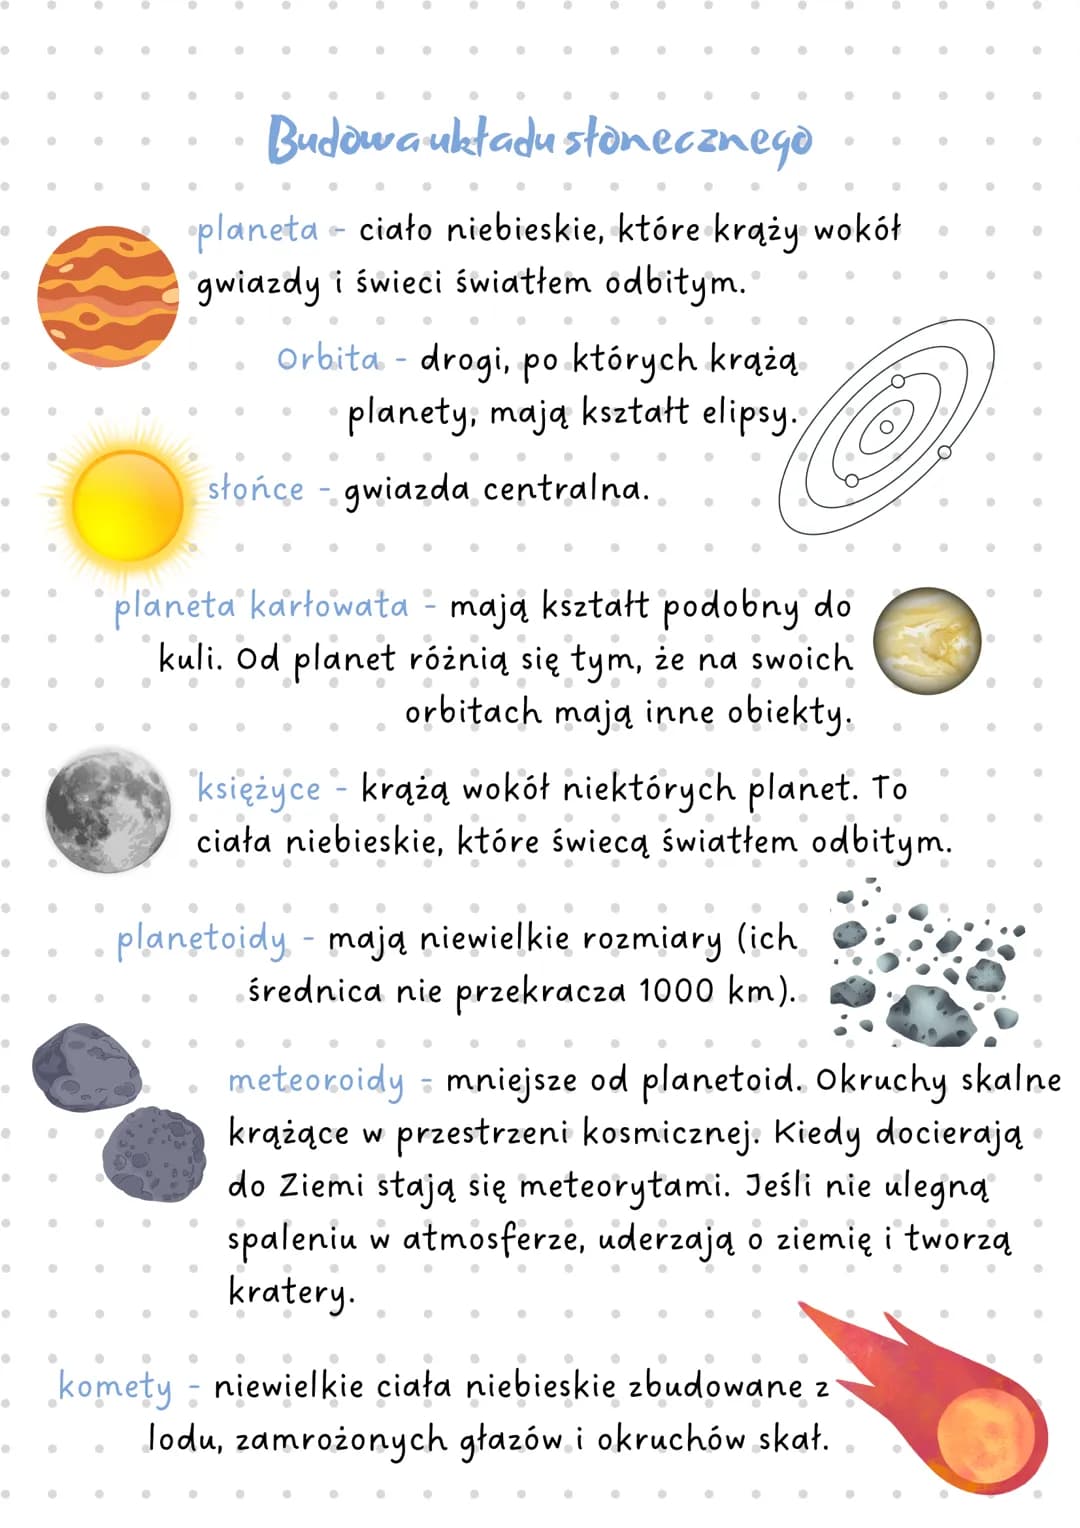 Budowa układu słonecznego
planeta - ciało niebieskie, które krąży wokół
gwiazdy i świeci światłem odbitym.
Orbita - drogi, po których krążą
planety, mają kształt elipsy.
słońce - gwiazda centralna.
planeta karłowata - mają kształt podobny do
kuli. Od planet różnią się tym, że na swoich
orbitach mają inne obiekty.
księżyce - krążą wokół niektórych planet. To
ciała niebieskie, które świecą światłem odbitym.
planetoidy - mają niewielkie rozmiary (ich
średnica nie przekracza 1000 km).
meteoroidy - mniejsze od planetoid. Okruchy skalne
krążące w przestrzeni kosmicznej. Kiedy docierają
do Ziemi stają się meteorytami. Jeśli nie ulegną
spaleniu w atmosferze, uderzają o ziemię i tworzą
kratery.
komety - niewielkie ciała niebieskie zbudowane z
lodu, zamrożonych głazów i okruchów skał.